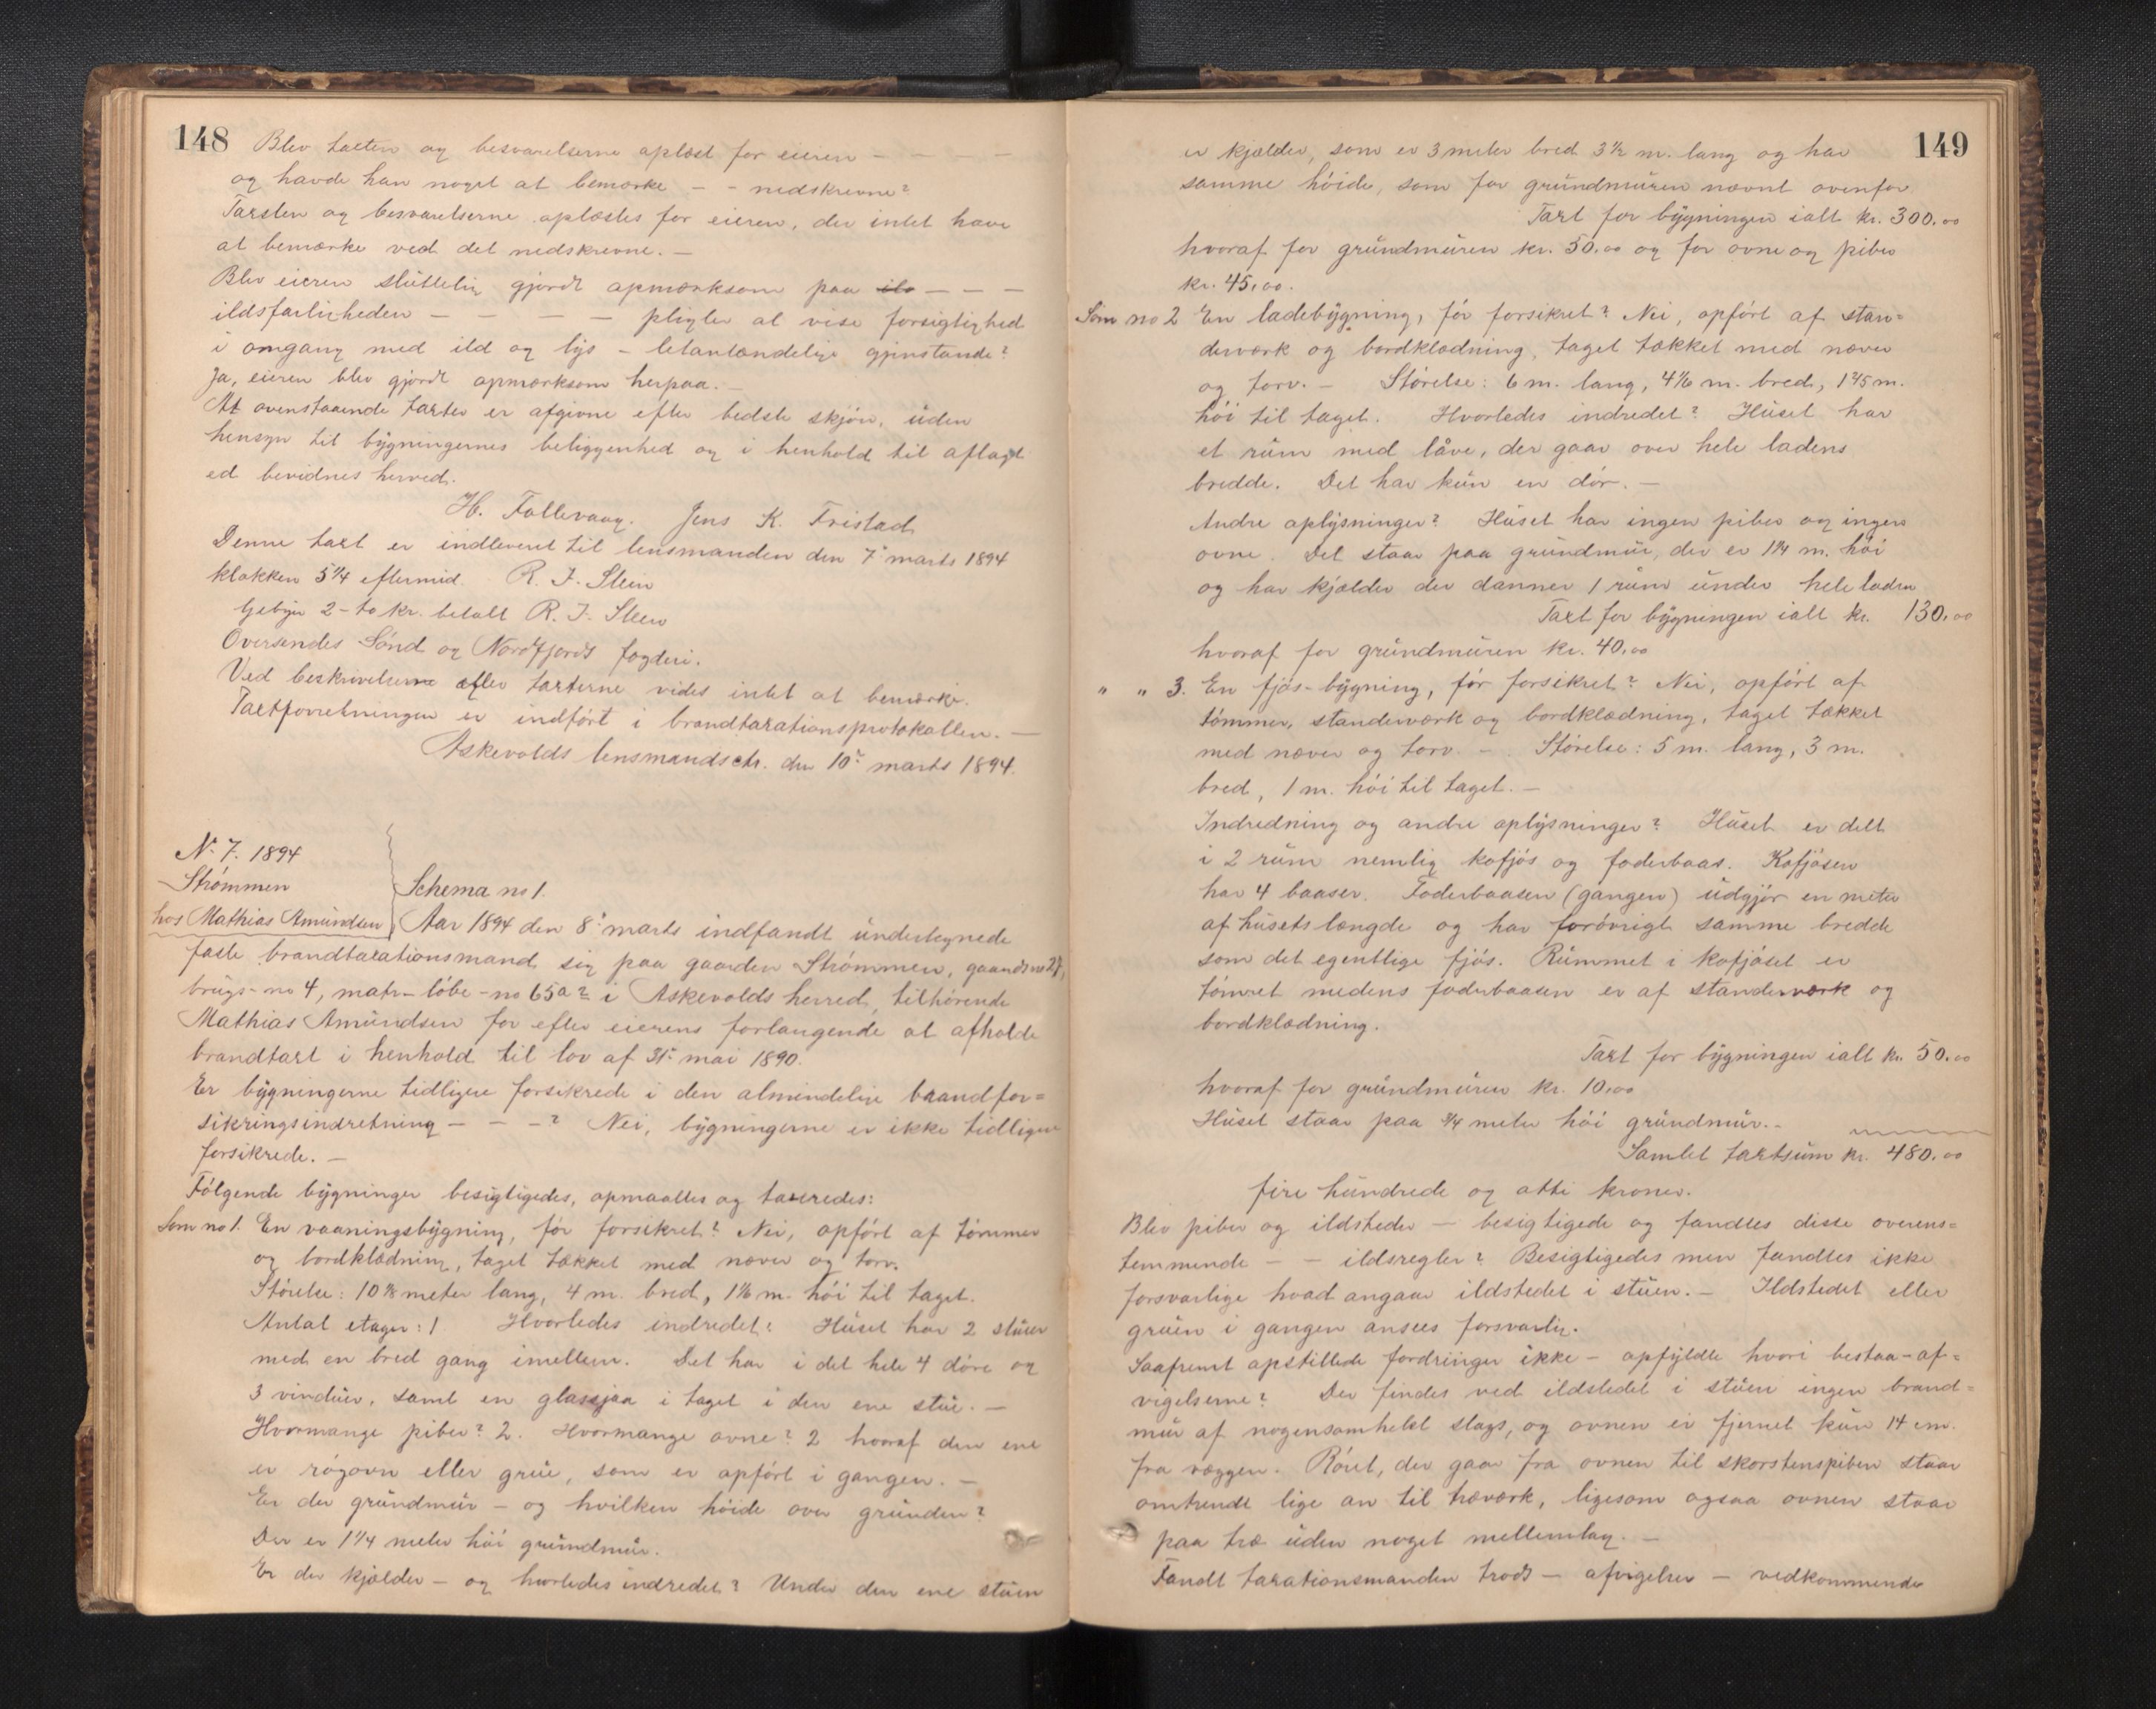 148
Blev taxten og besvarelserne oplæst for eieren - - - -
og havde han noget at bemærke - - nedskrevne?
Taxsten og besvarelserne oplæstes for eieren, der intet have
at bemærke ved det nedskrevne. -
Blev eieren sluttelig gjordt opmærksom paa ilo - - -
ildsfarligheden - - - - pligter at vise forsigtighed
i omgang med ild og lys - letantændelige gjenstande?
Ja, eieren blev gjordt opmærksom herpaa. -
At ovenstaaende taxter er afgivne efter bedste skjøn, uden
hensyn til bygningernes beliggenhed og i henhold til aflagt
ed bevidnes herved.
H. Follevaag. Jens K. Fristad
Denne taxt er indleveret til lensmanden den 7de marts 1894
klokken 5 1/4 eftermid. R. J. Steen
Gebyr 2 - to kr. betalt R. J. Steen
Oversendes Sønd og Nordfjords fogderi.
Ved beskrivelserne eller taxterne vides intet at bemærke.
Taxtforretningen er indført i brandtaxationsprotokollen. -
Askevolds lensmandsctr. den 10de marts 1894.
No 7. 1894
Strømmen
hos Mathias Amundsen
Schema no 1.
Aar 1894 den 8de marts indfandt undertegnede
faste brandtaxationsmænd sig paa gaarden Strømmen, gaards no 27,
brugs-no 4, matr-løbe-no 65a2 i Askevolds herred, tilhørende
Mathias Amundsen for efter eierens forlangende at afholde
brandtaxt i henhold til lov af 31te mai 1890.
Er bygningerne tidligere forsikrede i den almindelige brandfor=
sikringsindretning - - -? Nei, bygningerne er ikke tidligere
forsikrede. -
Følgende bygninger besigtigedes, opmaaltes og taxeredes:
Som no 1. En vaaningsbygning, før forsikret? Nei, opført af tømmer
og bordklædning, taget tækket med næver og torv.
Størelse: 10 5/8 meter lang, 4 m. bred, 1 1/6 m. høi til taget.
Antal etager: 1 Hvorledes indredet? Huset har 2 stuer
med en bred gang imellem. Det har i det hele 4 døre og
3 vinduer, samt en glassjaa i taget i den ene stue. -
Hvormange piber? 2. Hvormange ovne? 2 hvoraf den ene
er røgovn eller grue, som er opført i gangen. -
Er der grundmur - og hvilken høide over grunden?
Der er 1 1/4 meter høi grundmur.
Er der kjælder - og hvorledes indredet? Under den ene stuen
149
er kjælder, som er 3 meter bred 3 1/2 m. lang og har
samme høide, som for grundmuren nævnt ovenfor.
Taxt for bygningen ialt kr. 300.00
hvoraf for grundmuren kr. 50.00 og for ovne og piber
kr. 45,00.
Som no 2 En ladebygning, før forsikret? Nei, opført af stan=
derværk og bordklædning, taget tækket med næver
og torv. - Størelse: 6 m. lang, 4 1/6 m. bred, 1 2/5 m.
høi til taget. Hvorledes indredet? Huset har
et rum med låve, der gaar over hele ladens
bredde. Det har kun en dør. -
Andre oplysninger? Huset har ingen piber og ingen
ovne. Det staar paa grundmur, der er 1 1/4 m. høi
og har kjælder der danner 1 rum under hele laden
Taxt for bygningen ialt kr. 130.00
hvoraf for grundmuren kr. 40.00
" " 3. En fjøs-bygning, før forsikret? Nei, opført af
tømmer, standerværk og bordklædning, taget tækket
med næver og torv. - Størelse: 5 m. lang, 3 m.
bred, 1 m. høi til taget. -
Indredning og andre oplysninger? Huset er delt
i 2 rum nemlig kofjøs og foderbaas. Kofjøsen
har 4 baaser. Foderbaasen (gangen) udgjør en meter
af husets længde og har forøvrigt samme bredde
som det egentlige fjøs. Rummet i kofjøset er
tømret medens foderbaasen er af standerværk og
bordklædning.
Taxt for bygningen ialt kr. 50.00
hvoraf for grundmuren kr. 10.00
Huset staar paa 3/4 meter høi grundmur. -
Samlet taxtsum kr. 480.00
fire hundrede og otti kroner.
Blev piber og ildsteder - besigtigede og fandtes disse overens=
temmende - - ildsregler? Besigtigedes men fandtes ikke
forsvarlige hvad angaar ildstedet i stuen. - Ildstedet eller
gruen i gangen ansees forsvarlig.
Saafremt opstillede fordringer ikke - opfyldte hvori bestaa - af=
vigelserne? Der findes ved ildstedet i stuen ingen brand=
mur af nogensomhelst slags, og ovnen er fjernet kun 14 cm.
fra væggen. Røret, der gaar fra ovnen til skorstenspiben staar
omtrendt lige an til træværk, ligesom ogsaa ovnen staar
paa træ uden noget mellemlag. -
Fandt taxationsmanden trods - afvigelser - vedkommende